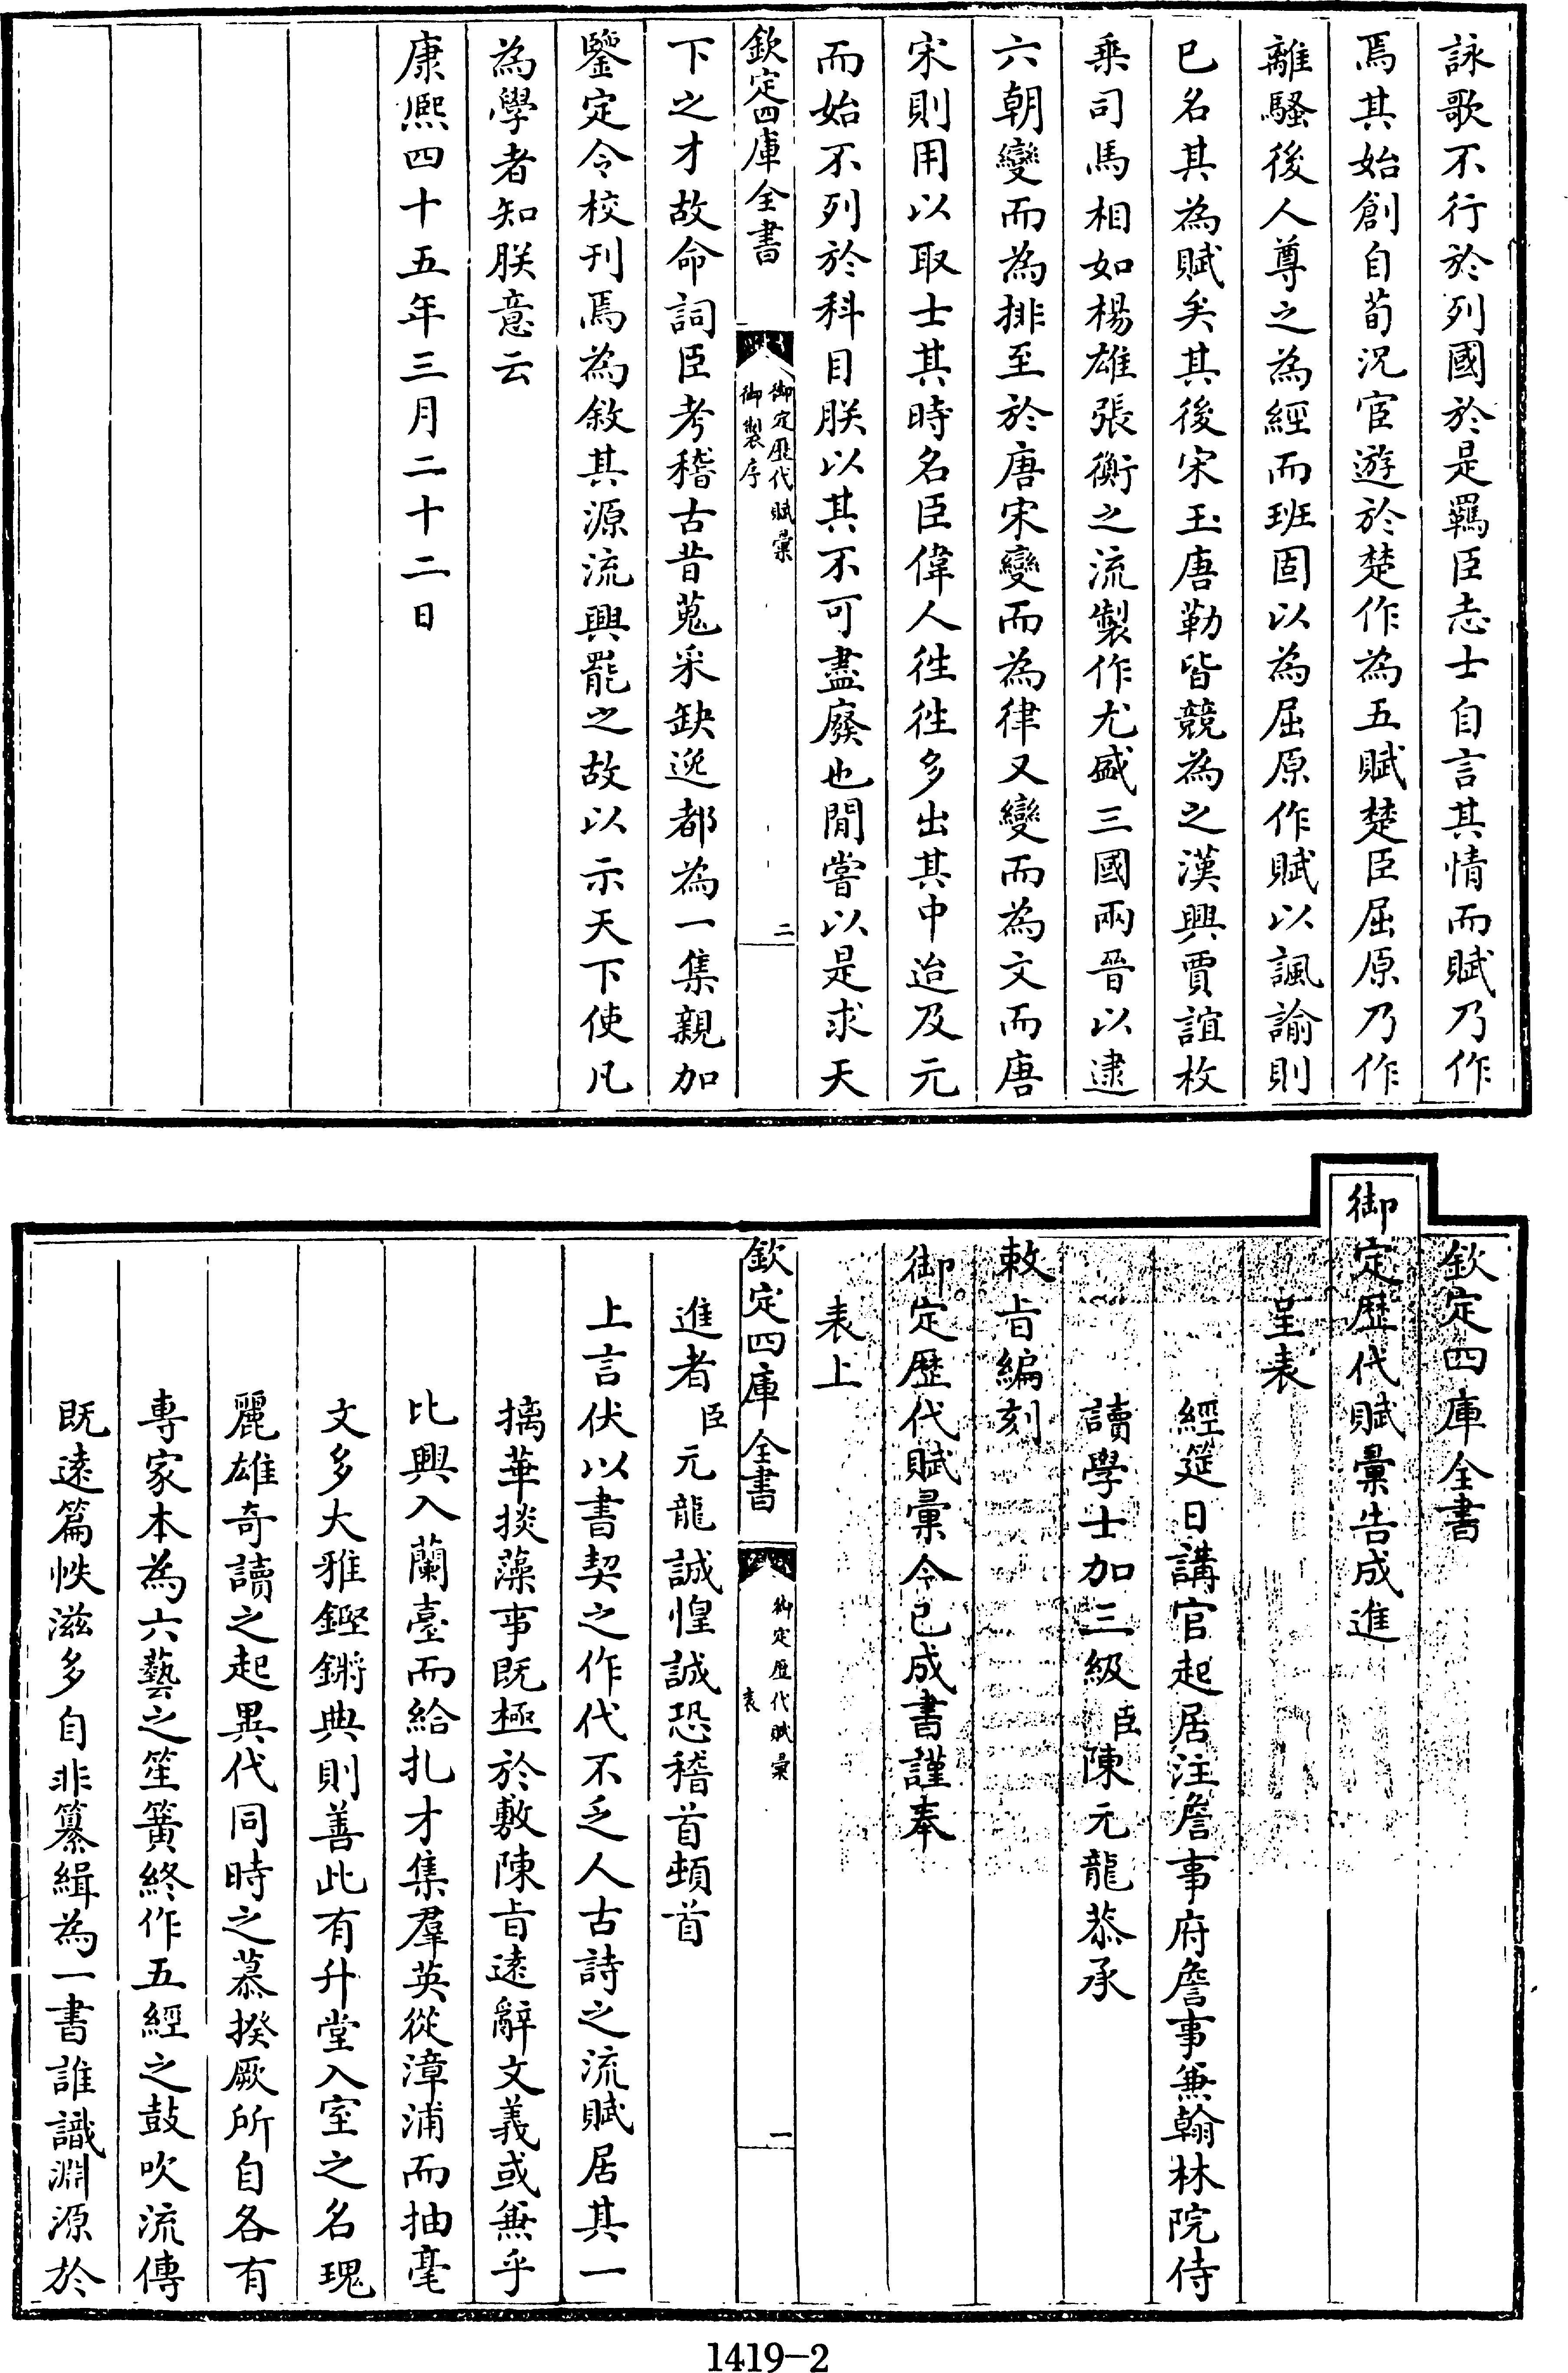 詠歌不行於列國於是羈臣志士自言其情而賦乃作
焉其始創自荀況宦遊於楚作為五賦楚臣屈原乃作
離騷後人尊之為經而班固以為屈原作賦以諷諭則
已名其為賦矣其後宋玉唐勒皆競為之漢興賈誼枚
乘司馬相如楊雄張衡之流製作尤盛三國兩晉以逮
六朝變而為排至於唐宋變而為律又變而為文而唐
宋則用以取士其時名臣偉人往往多出其中迨及元
而始不列於科目朕以其不可盡廢也閒嘗以是求天
欽定四庫全書
御定歷代賦彙
御製序
二
下之才故命詞臣考稽古昔蒐采缺逸都為一集親加
鑒定令校刊焉為敘其源流興罷之故以示天下使凡
為學者知朕意云
康熙四十五年三月二十二日
欽定四庫全書
御定歷代賦彙告成進
呈表
經筵日講官起居注詹事府詹事兼翰林院侍
讀學士加三級臣陳元龍恭承
敕旨編刻
御定歷代賦彙今已成書謹奉
表上
欽定四庫全書
御定歷代賦彙
表
一
進者臣元龍誠惶誠恐稽首頓首
上言伏以書契之作代不乏人古詩之流賦居其一
摛華掞藻事既極於敷陳旨遠辭文義或兼乎
比興入蘭臺而給扎才集羣英從漳浦而抽毫
文多大雅鏗鏘典則善此有升堂入室之名瑰
麗雄奇讀之起異代同時之慕揆厥所自各有
專家本為六藝之笙簧終作五經之鼓吹流傳
既遠篇帙滋多自非纂緝為一書誰識淵源於
1419-2